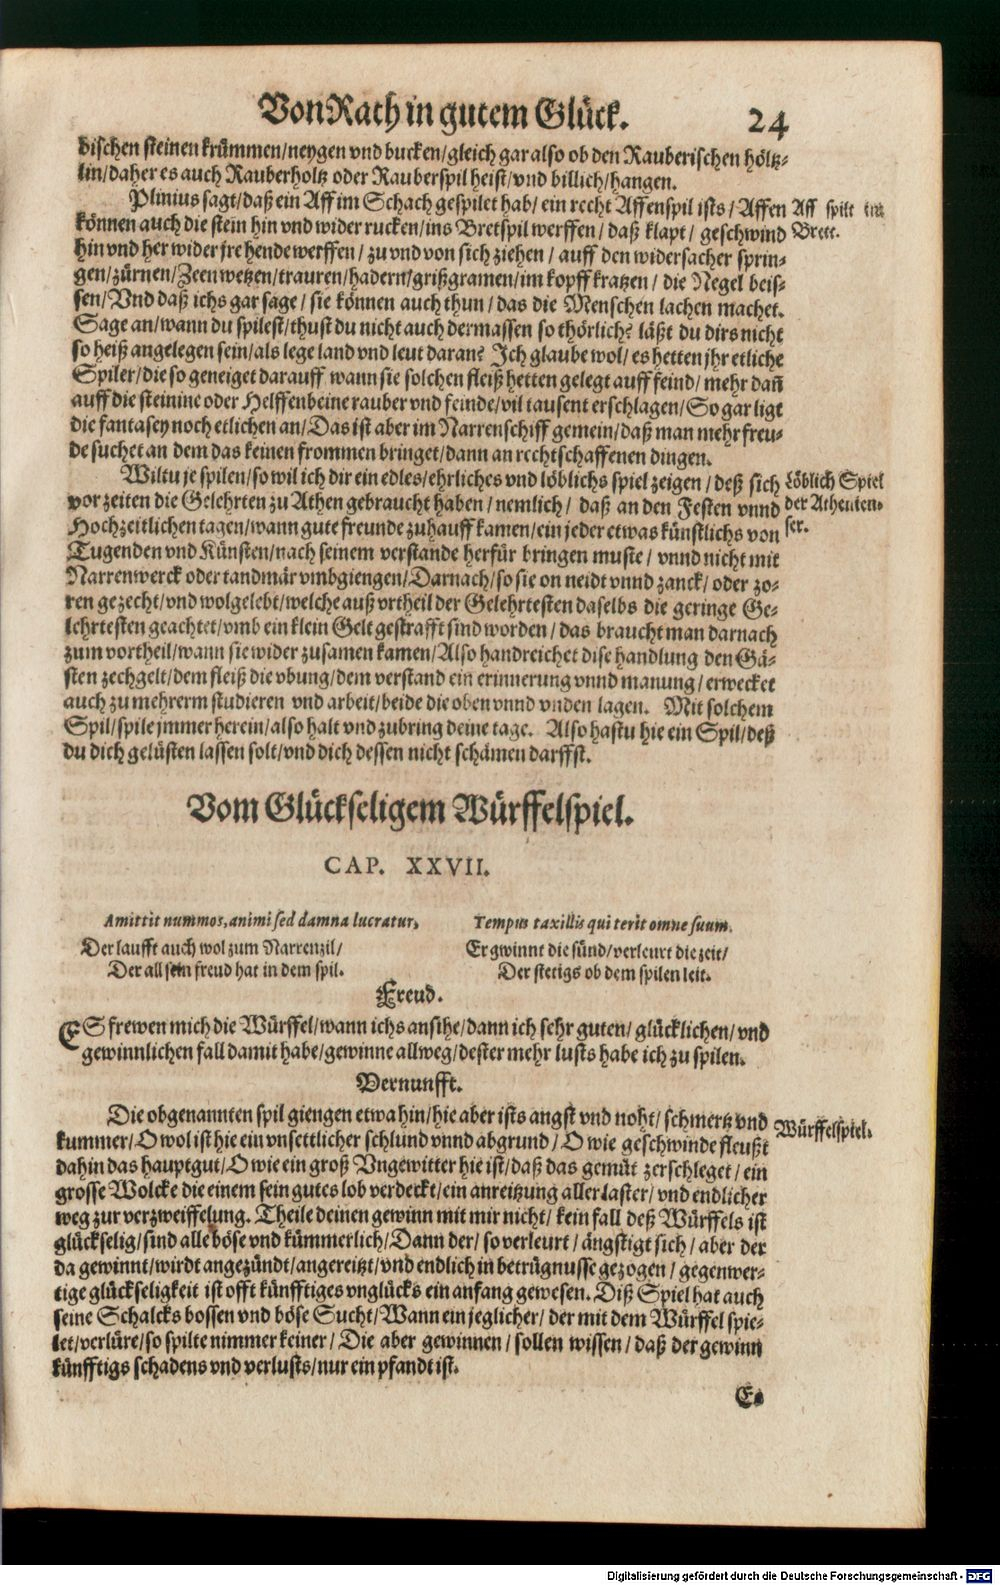 Von Rath in gutem Glück. 24
bischen steinen krümmen/neygen vnd bucken/gleich gar also ob den Rauberischen höltz-
lin/daher es auch Rauberholtz oder Rauberspil heist/vnd billich/hangen.
Plinius sagt/daß ein Aff im Schach gespilet hab/ein recht Affenspil ists/Affen
Aff spilt im
können auch die stein hin vnd wider rucken/ins Bretspil werffen/daß klapt/geschwind
Brett.
hin vnd her wider jre hende werffen/zu vnd von sich ziehen/auff den widersacher sprin-
gen/zürnen/Zeen wetzen/trauren/hadern/grißgramen/im kopff kratzen/die Negel beis-
sen/Vnd daß ichs gar sage/sie können auch thun/das die Menschen lachen machet.
Sage an/wann du spilest/thust du nicht auch dermassen so thörlich? läßt du dirs nicht
so heiß angelegen sein/als lege land vnd leut daran? Ich glaube wol/es hetten jhr etliche
Spiler/die so geneiget darauff wann sie solchen fleiß hetten gelegt auff feind/mehr dañ
auff die steinine oder Helffenbeine rauber vnd feinde/vil tausent erschlagen/So gar ligt
die fantasey noch etlichen an/Das ist aber im Narrenschiff gemein/daß man mehr freu-
de suchet an dem das keinen frommen bringet/dann an rechtschaffenen dingen.
Wiltu je spilen/so wil ich dir ein edles/ehrliches vnd löblichs spiel zeigen/deß sich
Löblich Spiel
vor zeiten die Gelehrten zu Athen gebraucht haben/nemlich/daß an den Festen vnnd
der Athenien-
Hochzeitlichen tagen/wann gute freunde zuhauff kamen/ein jeder etwas künstlichs von
ser.
Tugenden vnd Künsten/nach seinem verstande herfür bringen muste/vnnd nicht mit
Narrenwerck oder tandmär vmbgiengen/Darnach/so sie on neidt vnnd zanck/oder zo-
ren gezecht/vnd wolgelebt/welche auß vrtheil der Gelehrtesten daselbs die geringe Ge-
lehrtesten geachtet/vmb ein klein Gelt gestrafft sind worden/das braucht man darnach
zum vortheil/wann sie wider zusamen kamen/Also handreichet dise handlung den Gä-
sten zechgelt/dem fleiß die vbung/dem verstand ein erinnerung vnnd manung/erwecket
auch zu mehrerm studieren vnd arbeit/beide die oben vnnd vnden lagen. Mit solchem
Spil/spile jmmer herein/also halt vnd zubring deine tage. Also hastu hie ein Spil/deß
du dich gelüsten lassen solt/vnd dich dessen nicht schämen darffst.
Vom Glückseligem Würffelspiel.
CAP. XXVII.
Amittit nummos, animi sed damna lucratur,
Tempus taxillis qui terit omne suum.
Der laufft auch wol zum Narrenzil/
Er gwinnt die sünd/verleurt die zeit/
Der all sein freud hat in dem spil.
Der stetigs ob dem spilen leit.
Freud.
ES frewen mich die Würffel/wann ichs ansihe/dann ich sehr guten/glücklichen/vnd
gewinnlichen fall damit habe/gewinne allweg/dester mehr lusts habe ich zu spilen.
Vernunfft.
Die obgenannten spil giengen etwa hin/hie aber ists angst vnd noht/schmertz vnd
Würffelspiel.
kummer/O wol ist hie ein vnsettlicher schlund vnnd abgrund/O wie geschwinde fleußt
dahin das hauptgut/O wie ein groß Vngewitter hie ist/daß das gemüt zerschleget/ein
grosse Wolcke die einem sein gutes lob verdeckt/ein anreitzung aller laster/vnd endlicher
weg zur verzweiffelung. Theile deinen gewinn mit mir nicht/kein fall deß Würffels ist
glückselig/sind alle böse vnd kümmerlich/Dann der/so verleurt/ängstigt sich/aber der
da gewinnt/wirdt angezündt/angereitzt/vnd endlich in betrügnusse gezogen/gegenwer-
tige glückseligkeit ist offt künfftiges vnglücks ein anfang gewesen. Diß Spiel hat auch
seine Schalcks bossen vnd böse Sucht/Wann ein jeglicher/der mit dem Würffel spie-
let/verlüre/so spilte nimmer keiner/Die aber gewinnen/sollen wissen/daß der gewinn
künfftigs schadens vnd verlusts/nur ein pfandt ist.
Digitalisierung gefördert durch die Deutsche Forschungsgemeinschaft - DFG